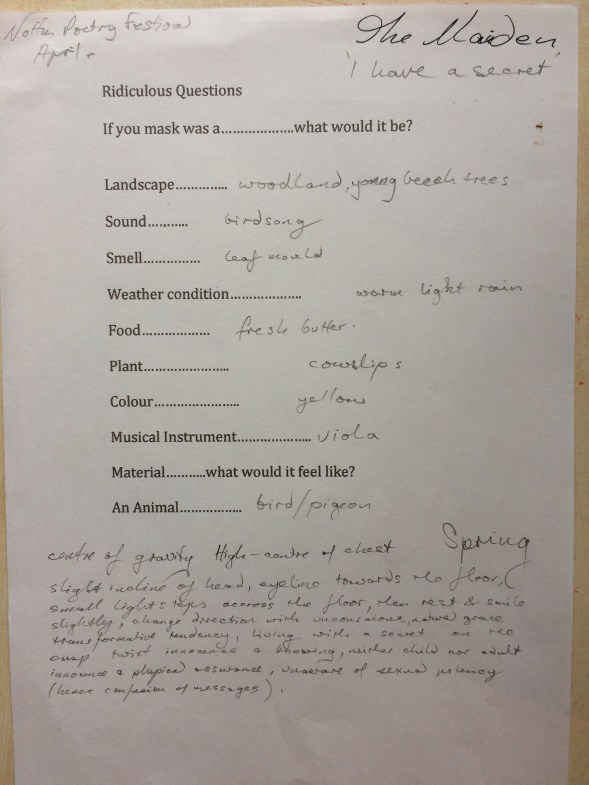 Poetry Festival
April.
The Maiden
'I have a secret'
Ridiculous Questions
If you mask was a....................what would it be?
Landscape.............. woodland, young beech trees
Sound........... birdsong
Smell............... leaf mould
Weather condition................... warm light rain
Food.................. fresh butter.
Plant....................... cowslips
Colour....................... yellow
Musical Instrument................... viola
Material..........what would it feel like?
An Animal................ bird/pigeon
Spring
centre of gravity High - centre of chest
slight incline of head, eyeline towards the floor,
small light steps accross the floor, then rest & smile
slightly, change direction with unconscious, natural grace
transformative tendency, living with a secret on the
cusp twixt innocence & knowing, neither child nor adult
innocence & physical assurance, unaware of sexual potency
(hence confusion of messages).